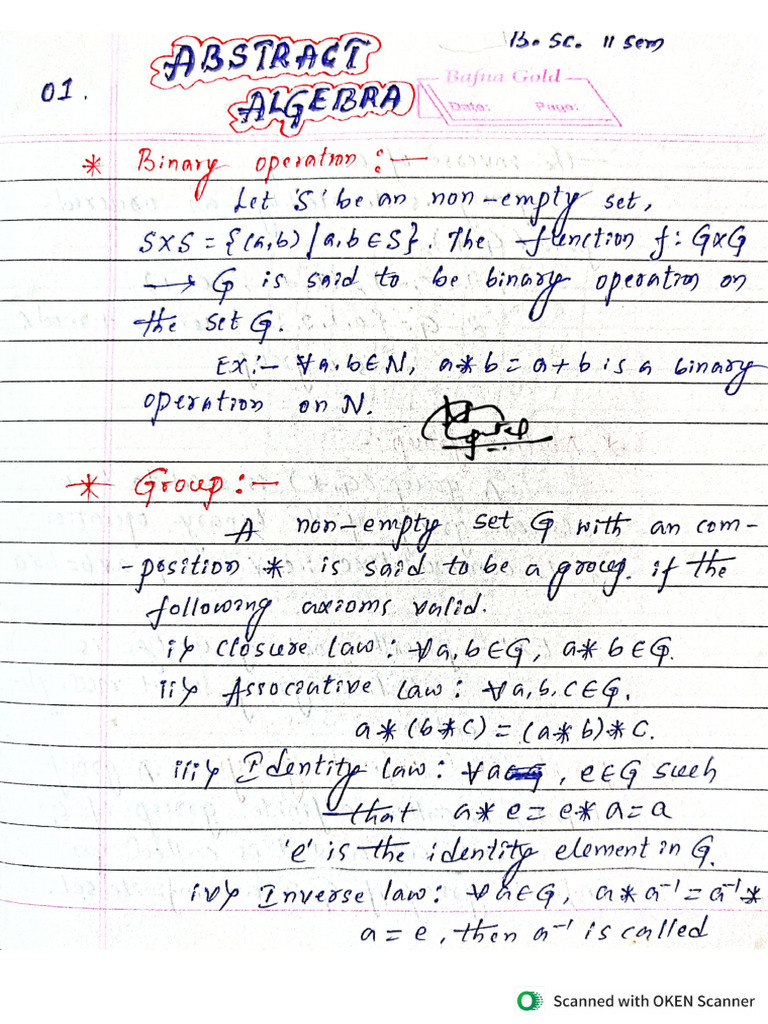 B.Sc. II Sem
ABSTRACT
01.
Bafna Gold
ALGEBRA
Date: Page:
* Binary operation:—
Let 'S' be an non-empty set,
S×S = {(a,b) / a,b∈S}. The function f: G×G
→ G is said to be binary operation on
the set G.
Ex:- ∀a,b∈N, a*b = a+b is a binary
operation on N.
* Group:—
A non-empty set G with an com-
-position * is said to be a group. if the
following axioms valid.
i) Closure law: ∀a,b∈G, a*b∈G.
ii) Associative law: ∀a,b,c∈G.
a*(b*c) = (a*b)*c.
iii) Identity law: ∀a∈G, e∈G such
that a*e = e*a = a
'e' is the identity element in G.
iv) Inverse law: ∀a∈G, a*a⁻¹ = a⁻¹*
a = e, then a⁻¹ is called
Scanned with OKEN Scanner